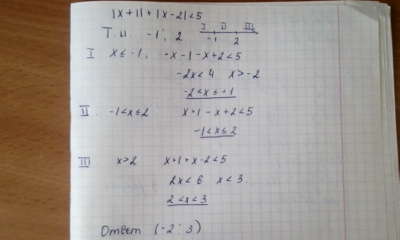 |x+1|+|x-2|<5
T. н -1; 2
I II III
-1 2
I x≤-1, -x-1-x+2<5
-2x<4 x>-2
-2<x≤-1
II -1<x≤2 x+1-x+2<5
-1<x≤2
III x>2 x+1+x-2<5
2x<6 x<3.
2<x<3
Ответ (-2; 3)